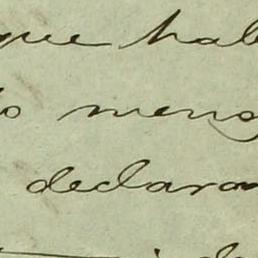 que hab
o mens
declaran